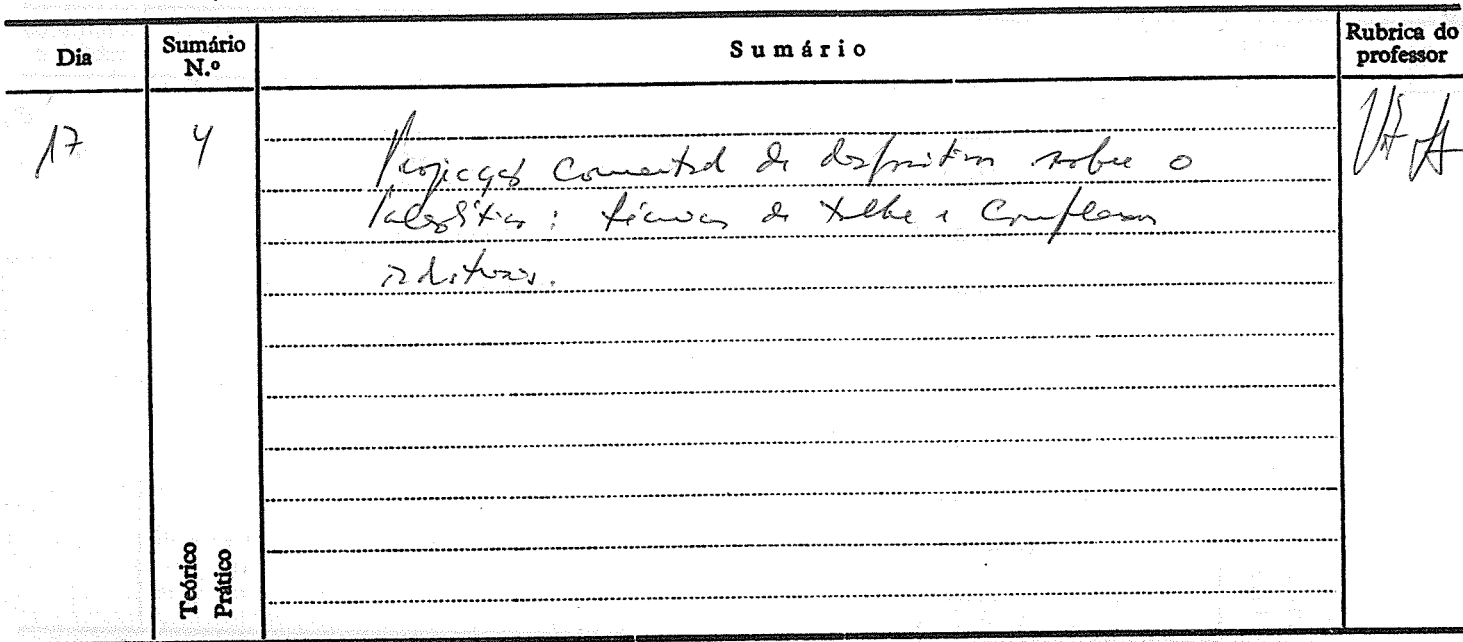 Dia
Sumário N.º
Sumário
Rubrica do professor
17
4
Projecção comentada de diapositivos sobre o
Paleolítico: técnicas de talhe e Complexos
Teórico
Prático